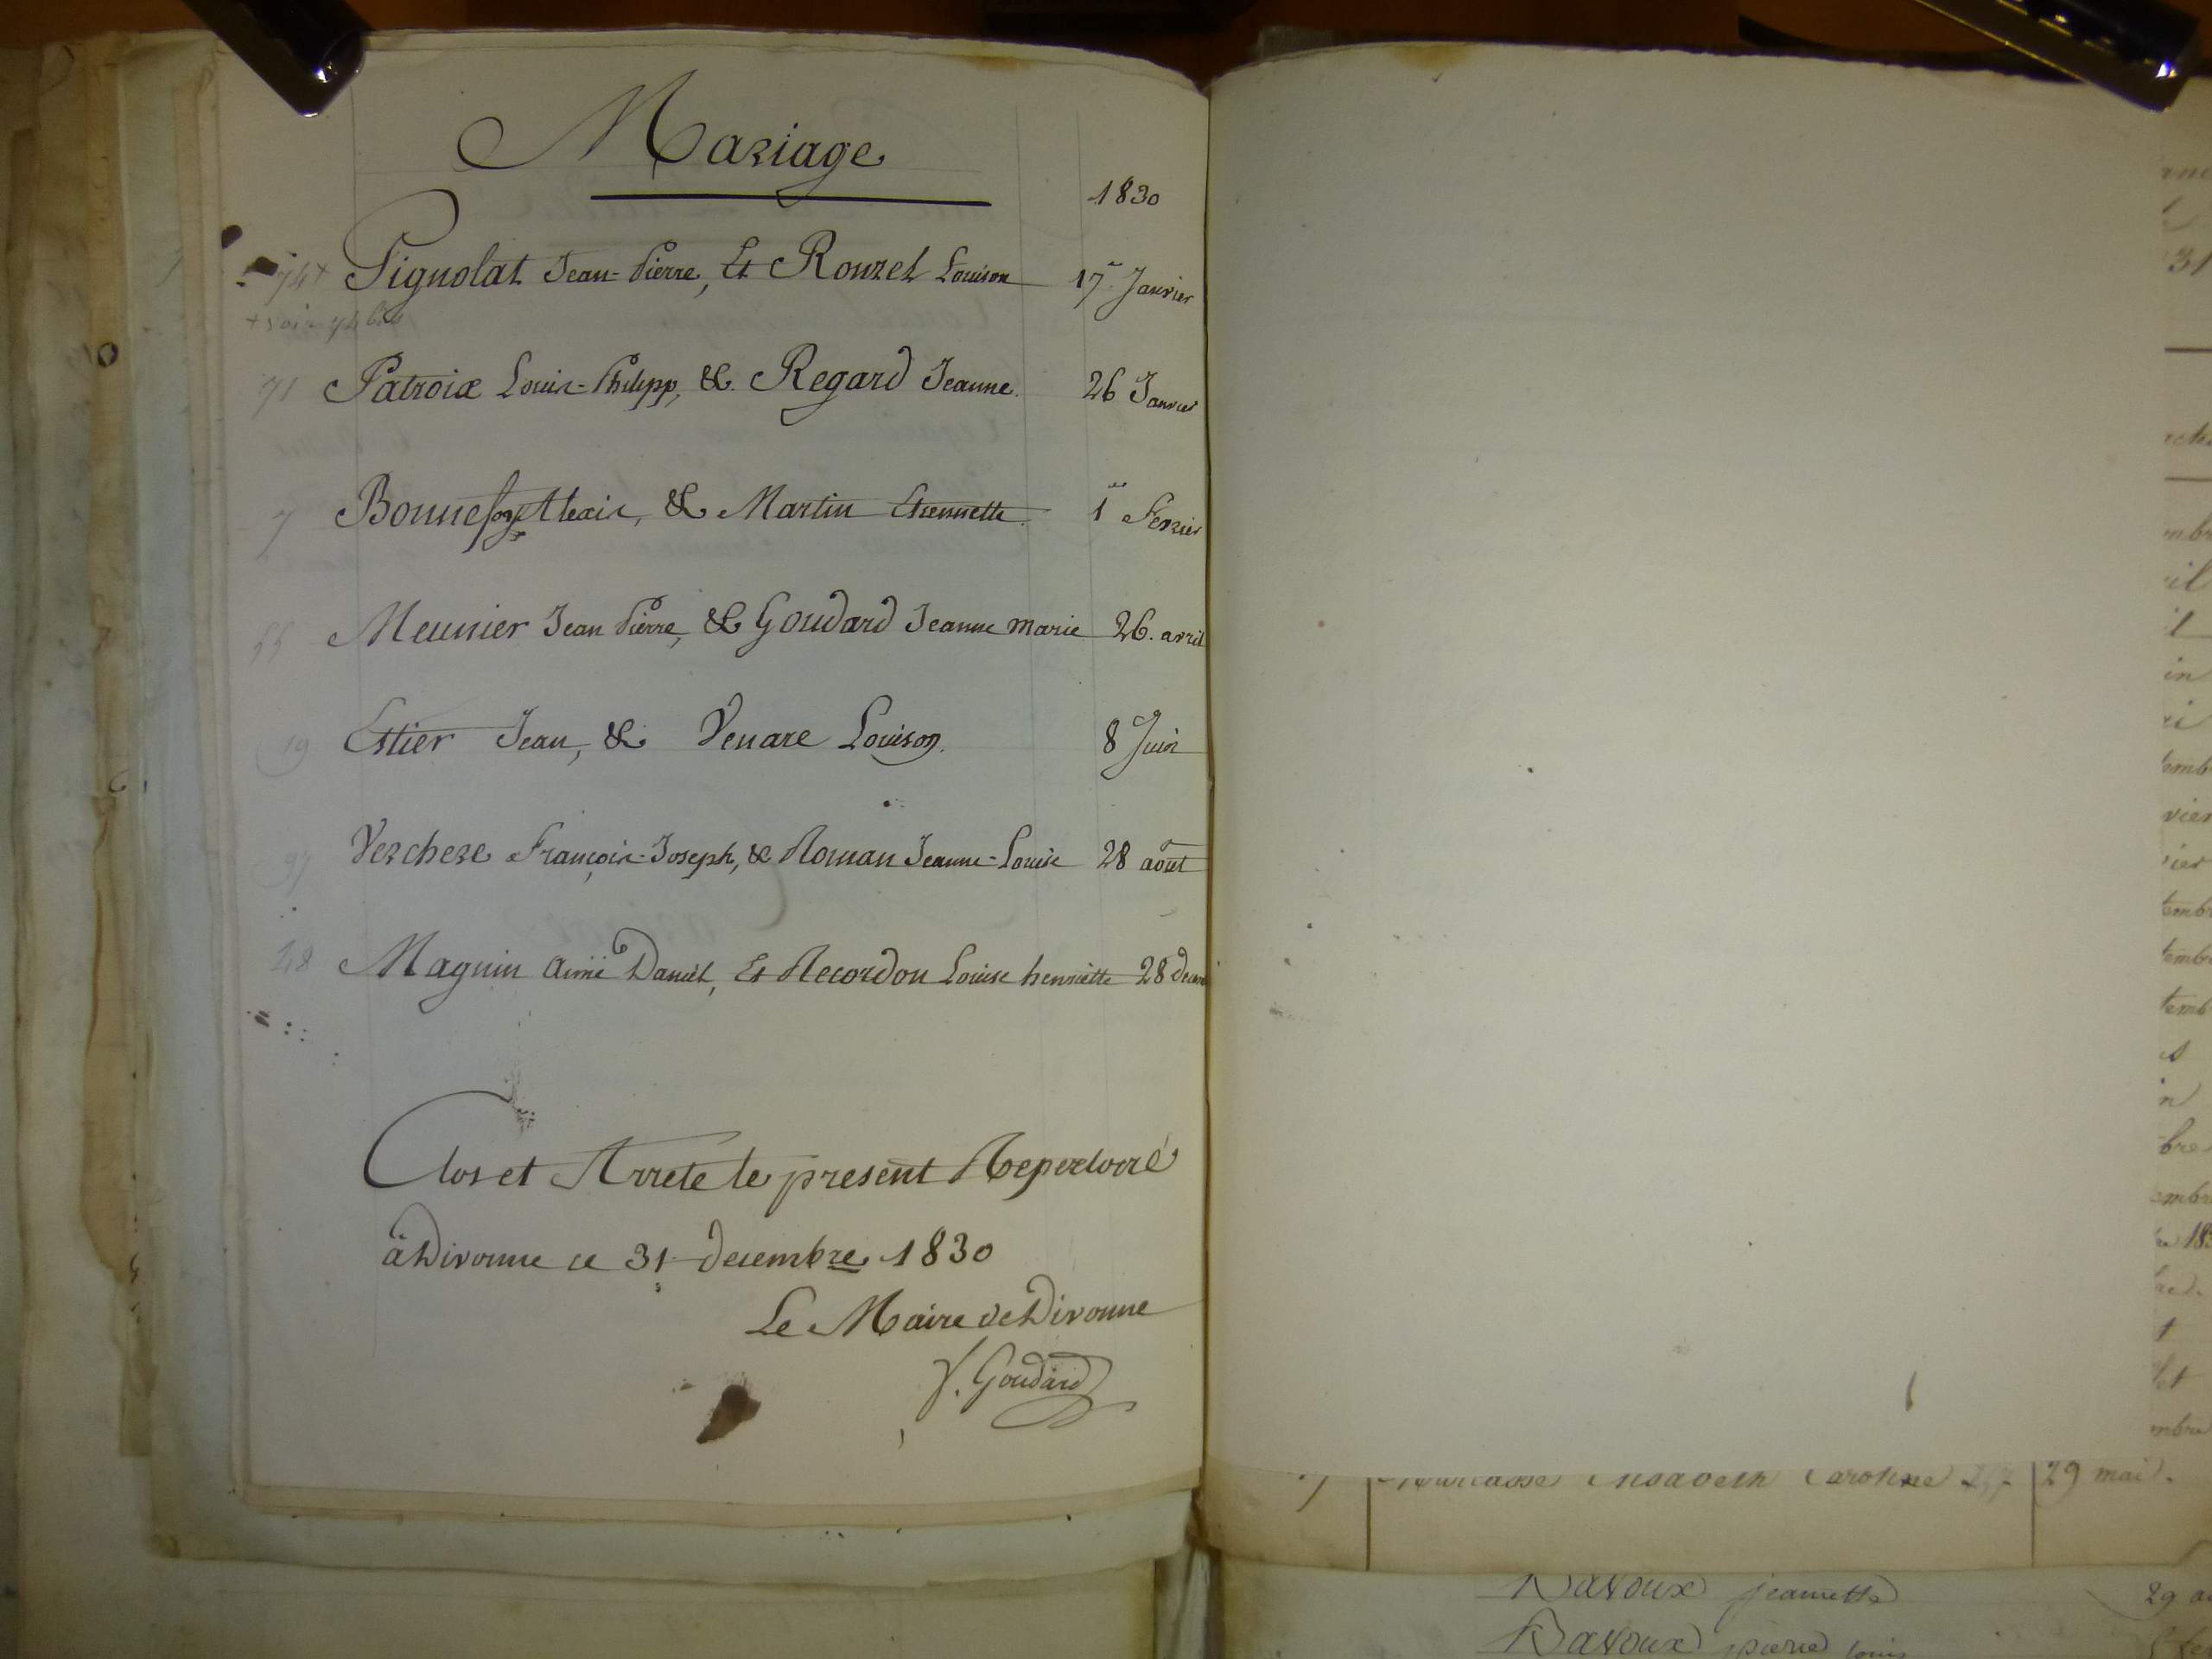 Mariage
1830
74+ Pignolat Jean-Pierre, Et Rouzet Louison 17 Janvier
+ voir 74 bis
71 Patroix Louis-Philipp, & Regard Jeanne. 26 Janvier
7 Bonnefoy Alexis, & Martin Etiennette 1er Fevrier
55 Meunier Jean Pierre, & Goudard Jeanne marie 26. avril
19 Estier Jean, & Venare Louison. 8 Juin
97 Verchere François-Joseph, & Roman Jeanne-Louise 28 août
48 Magnin aimé Daniel, Et Recordon Louise henriette 28 decem
Clos et Arrete le present Repertoire
à Divonne ce 31 decembre 1830
Le Maire de Divonne
Goudard
Caroline 29 mai.
Bavoux jeannette 29
Bavoux pierre louis